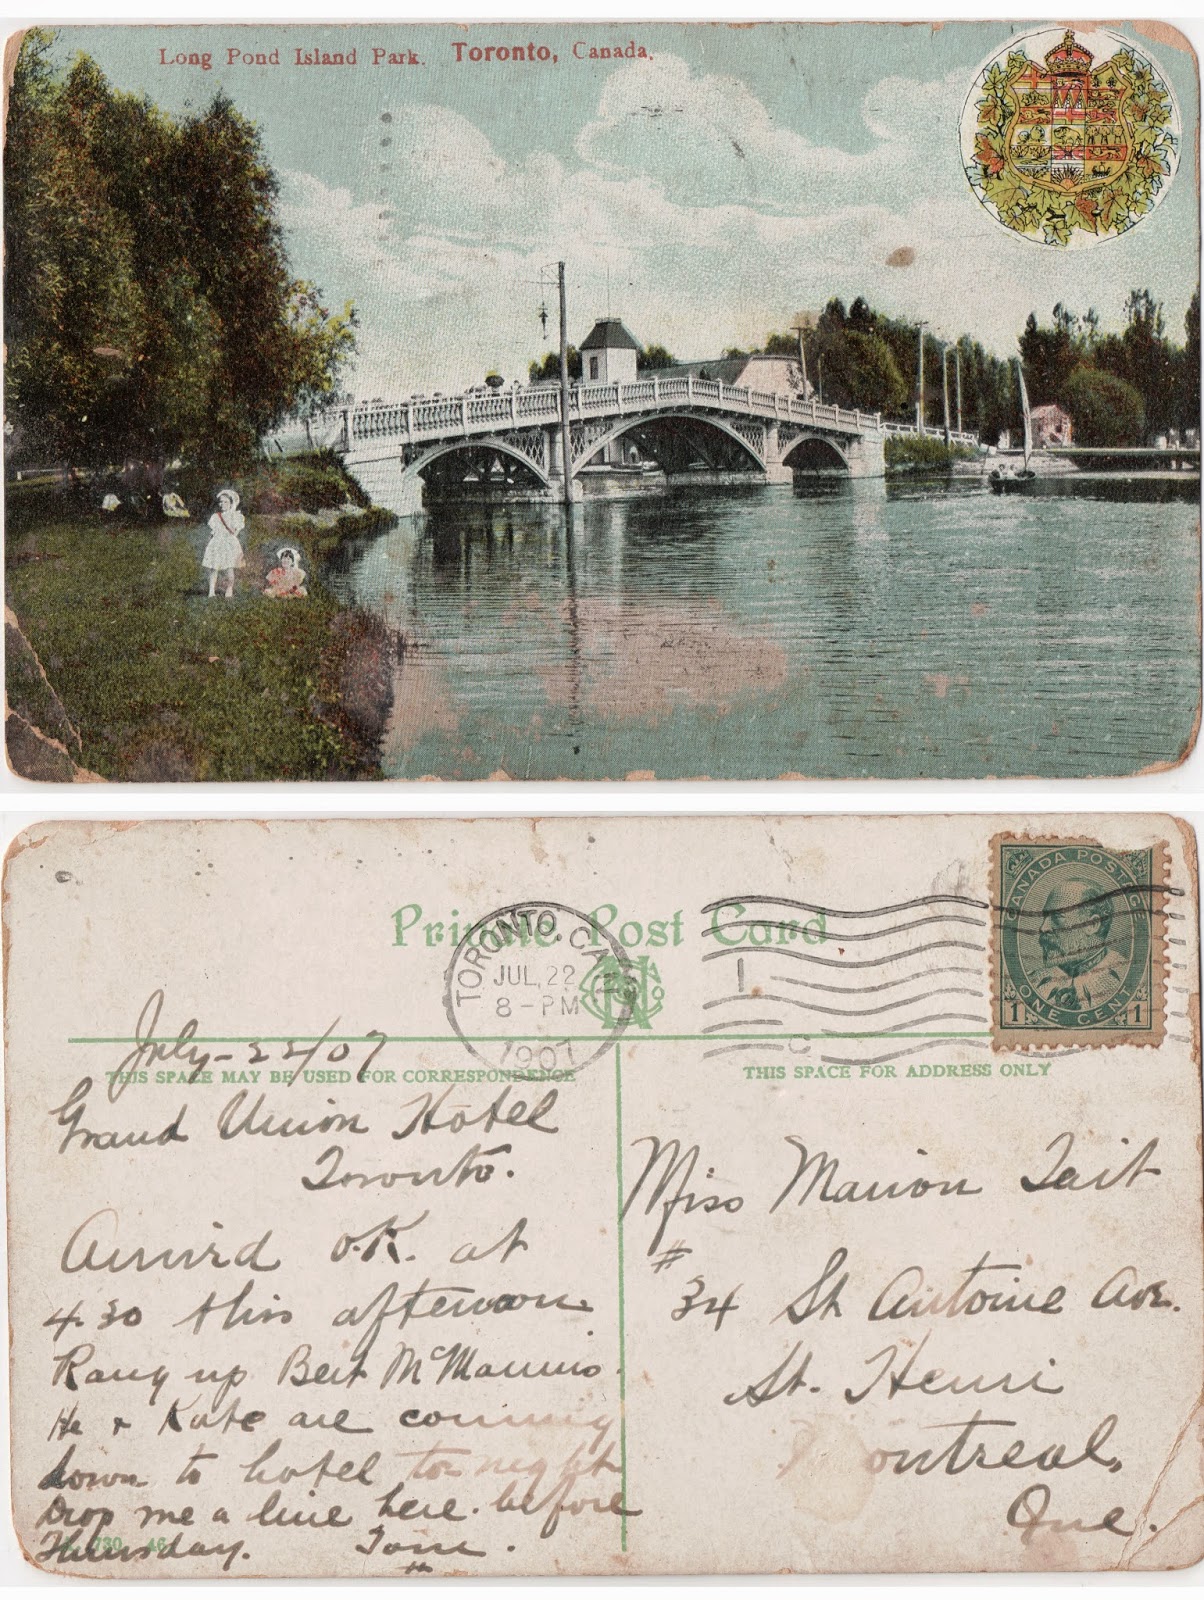 Long Pond Island Park. Toronto, Canada.
Private Post Card
TORONTO. CAN.
JUL 22
8-PM
1907
CANADA POSTAGE
1 ONE CENT 1
July-22/07
THIS SPACE MAY BE USED FOR CORRESPONDENCE
THIS SPACE FOR ADDRESS ONLY
Grand Union Hotel
Toronto.
Arrived O.K. at
4.30 this afternoon.
Rang up Bert McMannis.
He + Kate are coming
down to hotel to night
Drop me a line here. before
Thursday. Tom.
730 46
Miss Marion Tait
# 34 St Antoine Ave.
St. Henri
Montreal,
Que.